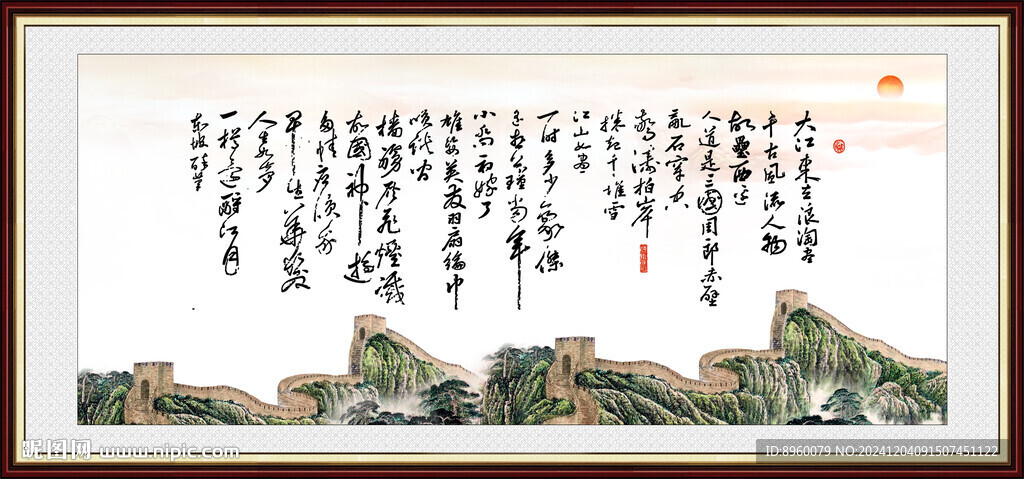 大江東去浪淘盡
千古風流人物
故壘西邊
人道是三國周郎赤壁
亂石穿空
驚濤拍岸
捲起千堆雪
江山如畫
一时多少豪傑
遥想公瑾當年
小喬初嫁了
雄姿英發羽扇綸巾
談笑間
檣艣灰飛煙滅
故國神遊
多情應笑我
早生華髮
人生如夢
一樽還酹江月
東坡醉筆
昵图网 www.nipic.com
ID:8960079 NO:20241204091507451122